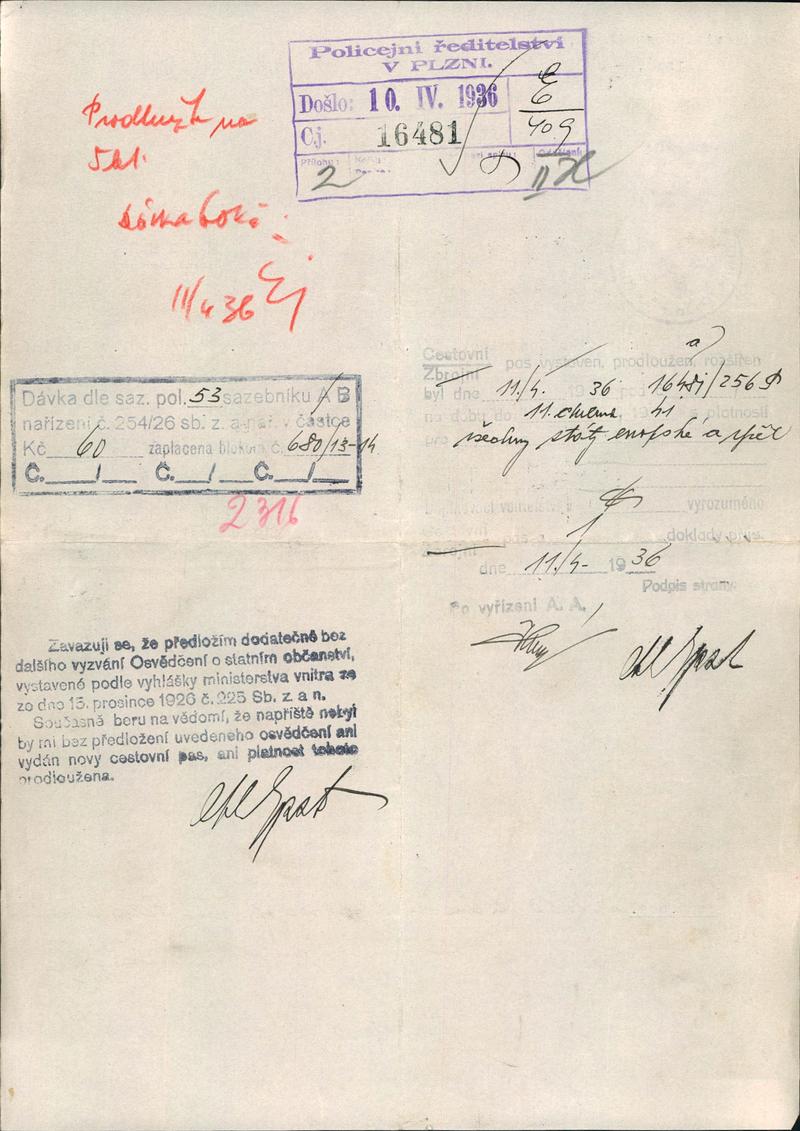 Policejní ředitelství
V PLZNI.
Došlo: 10. IV. 1936
Č.j. 16481
E
409
Přílohy:
2
II
Prodloužit na
5 let.
11/4 36
Dávka dle saz. pol. 53 sazebníku A B
nařízení č. 254/26 sb. z. a nař. v částce
Kč 60 zaplacena blokem č. 680/13-14
Č. / Č. / Č. /
2316
Cestovní
Zbrojní pas vystaven, prodloužen, rozšířen
byl dne 11/4. 1936 16481/256
na dobu do 11. 41 a platností
pro všechny státy evropské a zpět
vyrozuměno
doklady
dne 11/4- 1936
Podpis strany:
Po vyřízení A. A.
Zavazuji se, že předložím dodatečně bez
dalšího vyzvání Osvědčení o statním občanství,
vystavené podle vyhlášky ministerstva vnitra ze
ze dne 15. prosince 1926 č. 225 Sb. z. a n.
Současně beru na vědomí, že napříště nebyl
by mi bez předložení uvedeného osvědčení ani
vydán nový cestovní pas, ani platnost tohoto
prodloužena.